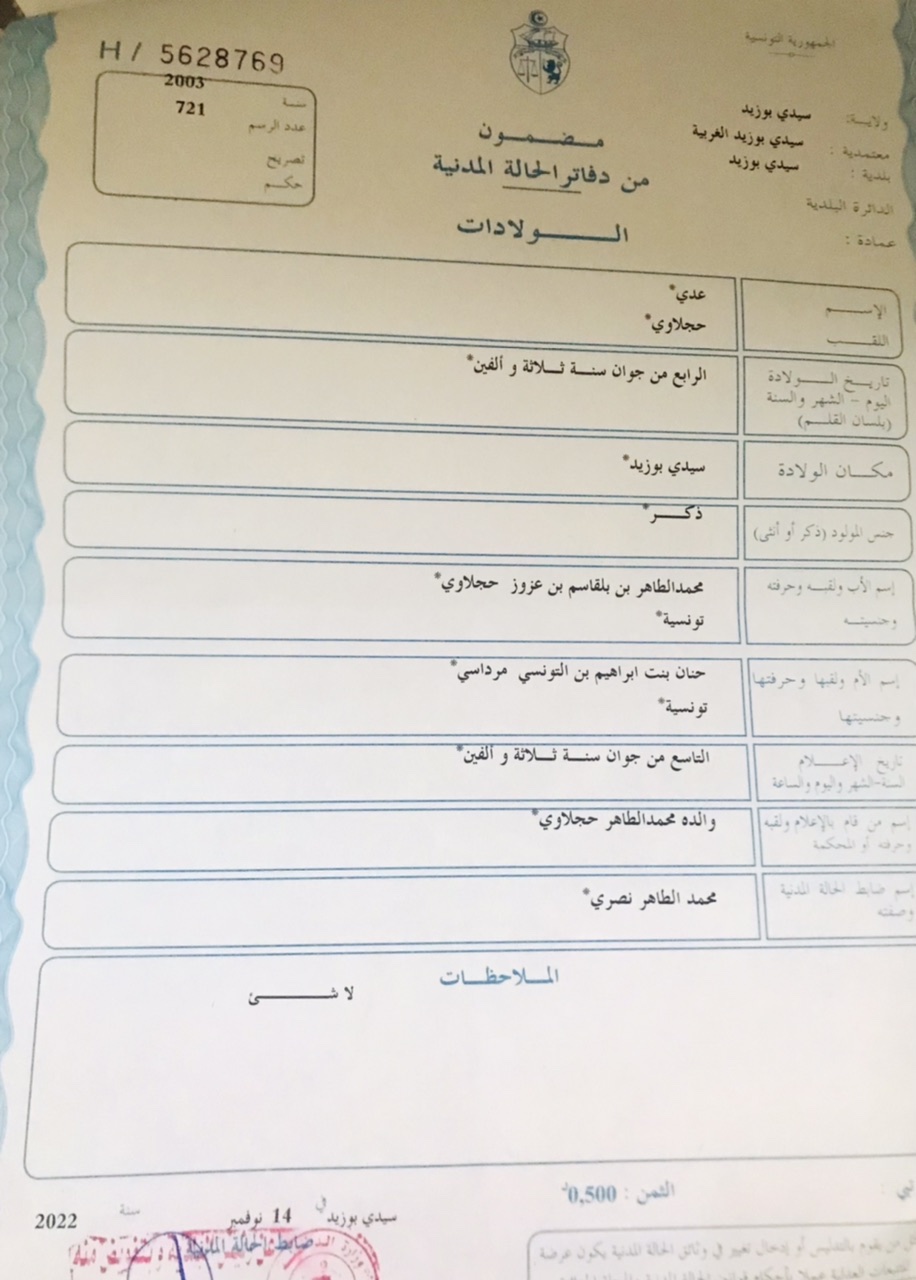 الجمهورية التونسية
H / 5628769
سنة 2003
عدد الرسم 721
تصريح
حكم
ولاية: سيدي بوزيد
معتمدية : سيدي بوزيد الغربية
بلدية : سيدي بوزيد
الدائرة البلدية
عمادة :
مضمون
من دفاتر الحالة المدنية
الولادات
الإسم عدي*
اللقب حجلاوي*
تاريخ الولادة الرابع من جوان سنة ثلاثة و ألفين*
اليوم - الشهر والسنة
(بلسان القلم)
مكان الولادة سيدي بوزيد*
جنس المولود (ذكر أو أنثى) ذكر*
إسم الأب ولقبه وحرفته محمدالطاهر بن بلقاسم بن عزوز حجلاوي*
وجنسيته تونسية*
إسم الأم ولقبها وحرفتها حنان بنت ابراهيم بن التونسي مرداسي*
وجنسيتها تونسية*
تاريخ الإعلام التاسع من جوان سنة ثلاثة و ألفين*
السنة-الشهر واليوم والساعة
إسم من قام بالإعلام ولقبه والده محمدالطاهر حجلاوي*
وحرفته أو المحكمة
إسم ضابط الحالة المدنية محمد الطاهر نصري*
وصفته
الملاحظات
لا شئ
الثمن : 0,500د
سيدي بوزيد في 14 نوفمبر سنة 2022
ضابط الحالة المدنية
من يقوم بالتدليس أو إدخال تغيير في وثائق الحالة المدنية يكون عرضة